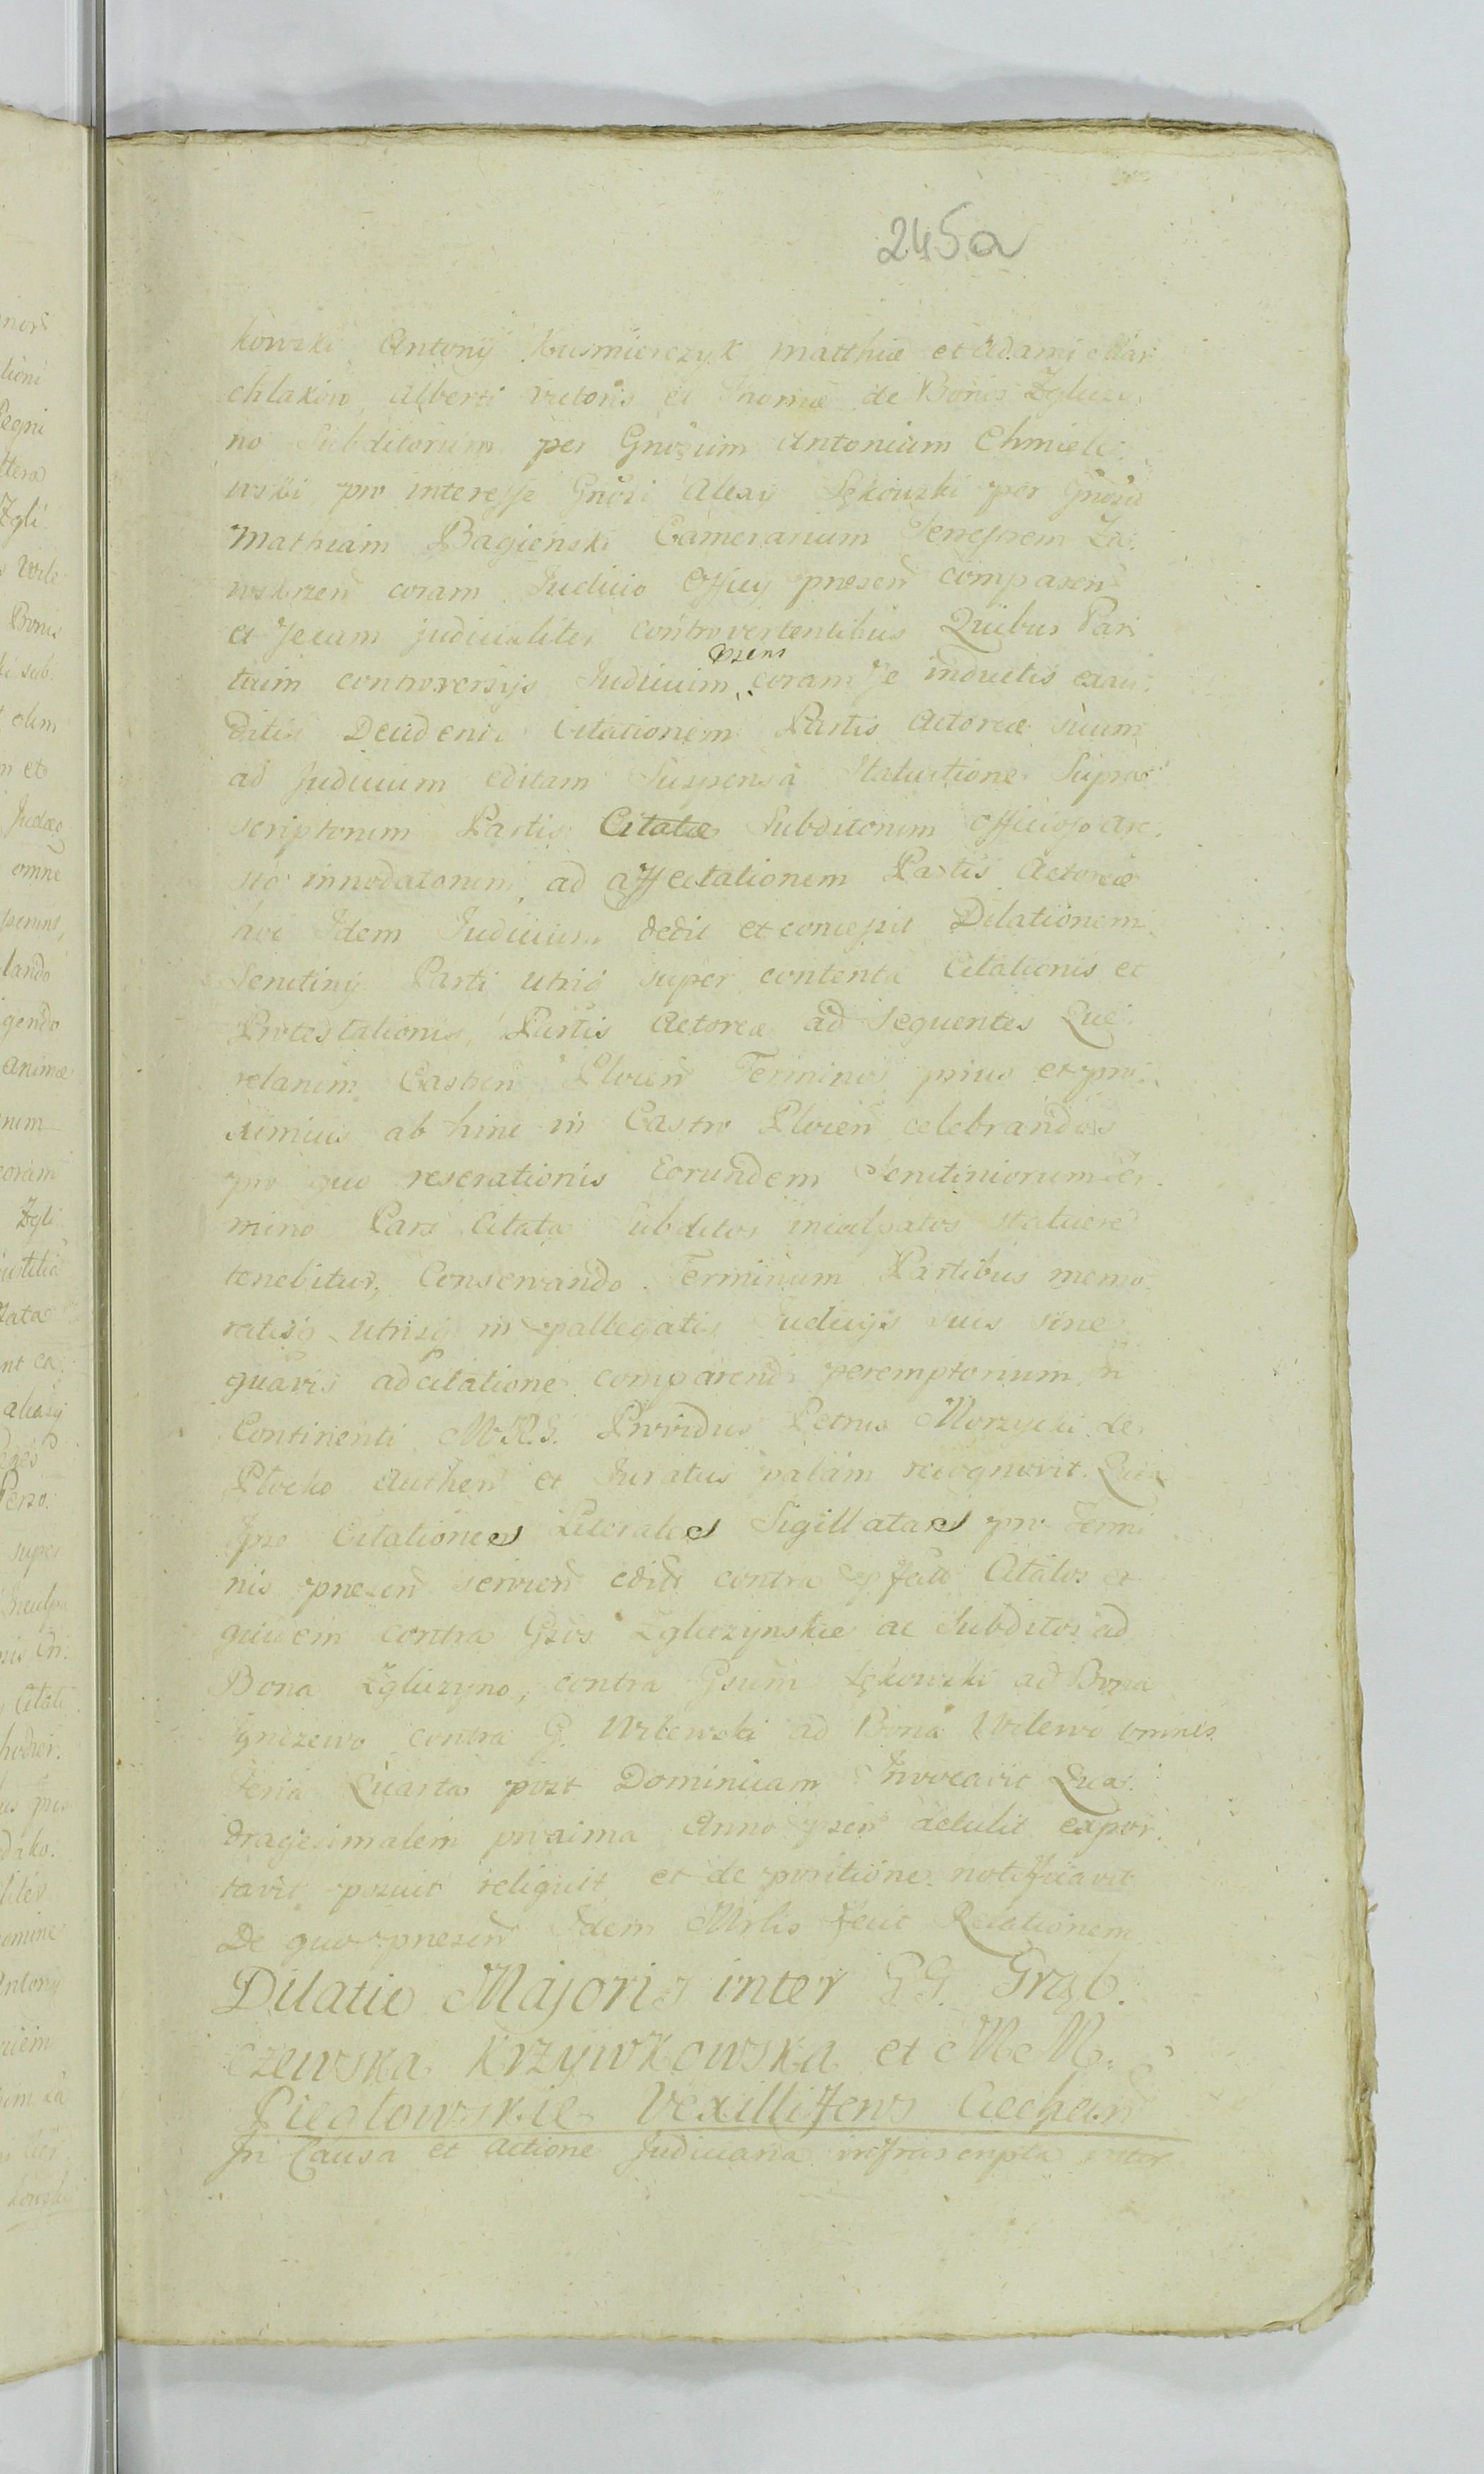 245a
kowski Antonij Kusmierczyk Matthiæ et Adami Mar
chlakow Alberti Vietoris et Thomæ de Bonis Zgluzi,
no Subditorum per Gnosum Antonium Chmiele
wski pro interesse Gnosi Alexij Lękowski per Gnosu
Mathiam Bagienski Camerarium Terrestrem Za
wskrzen coram Judicio Officij præsen comparen
et secum judicialiter controvertentibus Quibus Par
præns
tium controversijs Judicium coram se inductis exau
ditis Decidendo Citationem Partis Actoreæ suum
ad Judicium Editam Suspensa Statuitione Supra
scriptorum Partis Citatæ Subditorum officioso Are
sto innodatorum, ad affectationem Partis Actoreæ
hoc Idem Judicium dedit et concessit Dilationem
Scrutinij Parti utriq super contenta Citationis et
Protestationis Partis Actoreæ ad sequentes Que
relarum Castren Plocen Terminos prius et pro
ximius ab hinc in Castro Plocen celebrandos
pro quo reserationis Eorundem Scrutiniorum Ter
mino Pars Citata Subditos inculpatos statuere
tenebitur, Conservando Terminum Partibus memo
ratis utrisq in pallegatis Judicijs suis sine
quavis adcitatione comparendi peremptorium in
Continenti M.R.G. Providus Petrus Morzycki de
Plocko Authen et Juratus palam recognovit Quia
Ipse Citationes Literales Sigillatas pro Termi
nis præsen servien edidit contra Citatos et
quidem contra Gsos Zgluzynskie ac Subditos ad
Bona Zgluzyno, contra Gsum Lękowski ad Bona
contra G. Wilewski ad Bona Wilewo omnes
Feria Quarta post Dominicam Invocavit Qua
dragesimalem proxima Anno præsen detulit expor
tavit posuit reliquit et de positione notificavit
De quo præsen Idem Mrlis fecit Relationem
Dilatio Majoris inter GG. Grąb.
czewska Krzywkowska et MM.
Pieglowskie Vexilliferos Ciechan
In Causa et Actione Judiciaria infrascripta inter